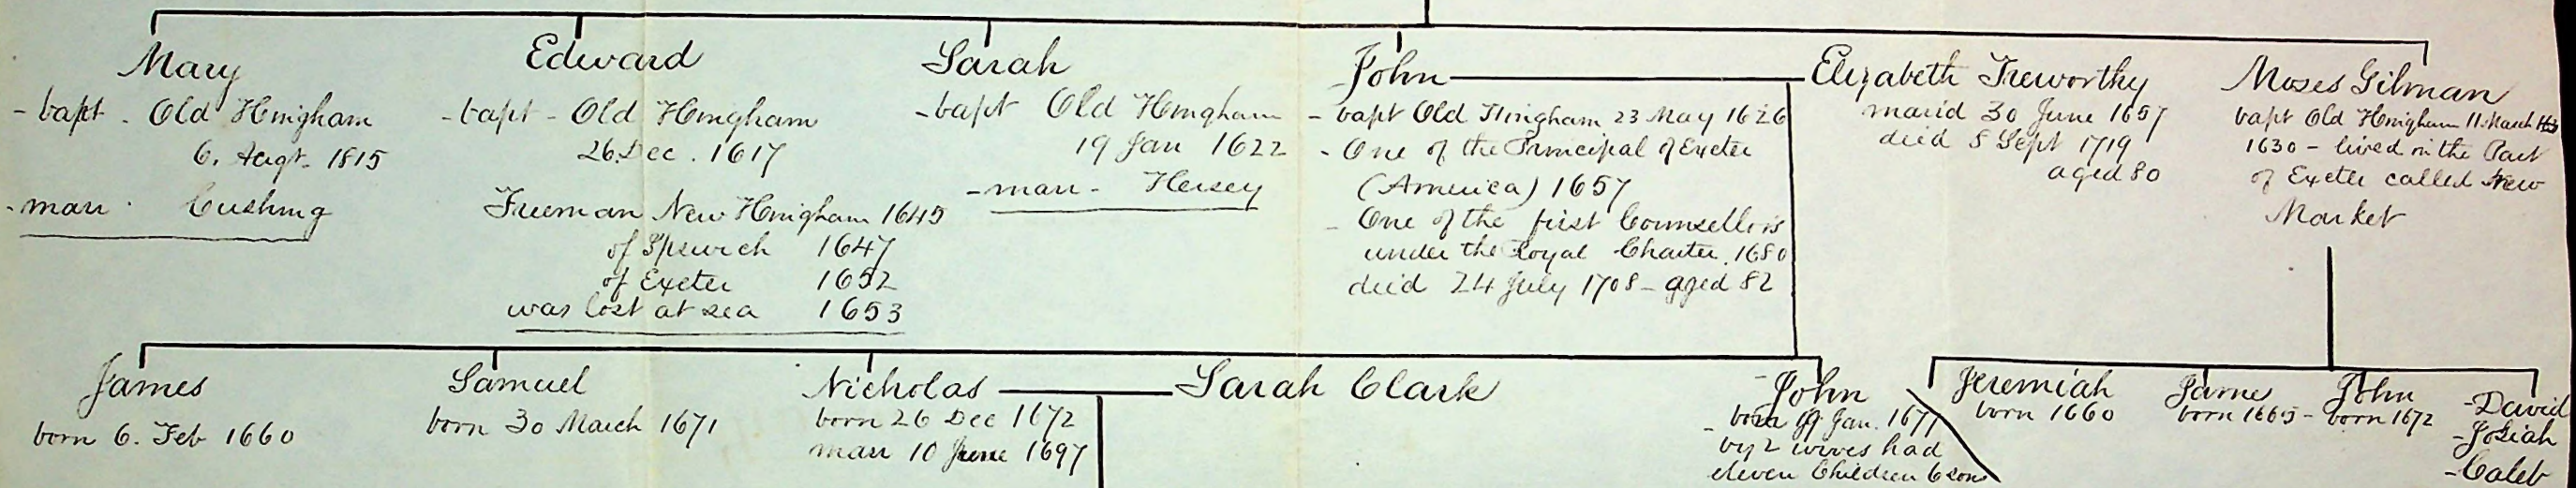 Mary
- bapt. Old Hingham
6. Augt. 1815
- marr. Cushing
Edward
- bapt - Old Hingham
26. Dec. 1617
Freeman New Hingham 1645
of Ipswich 1647
of Exeter 1652
was lost at sea 1653
Sarah
- bapt Old Hingham
19 Jan 1622
- marr - Hersey
John
- bapt Old Hingham 23 May 1626
- One of the Principal of Exeter
(America) 1657
- One of the first Counsellors
under the Royal Charter. 1680
died 24 July 1708 - aged 82
Elizabeth Treworthy
maried 30 June 1657
died 8 Sept 1719
aged 80
Moses Gilman
bapt Old Hingham 11. March
1630 - lived in the Part
of Exeter called New
Market
James
born 6. Feb 1660
Samuel
born 30 March 1671
Nicholas
born 26 Dec 1672
marr 10 June 1697
Sarah Clark
- John
- born 19 Jan. 1677
by 2 wives had
eleven Children 6 sons
Jeremiah
born 1660
Jame
born 1665 -
John
born 1672
- David
- Josiah
- Caleb